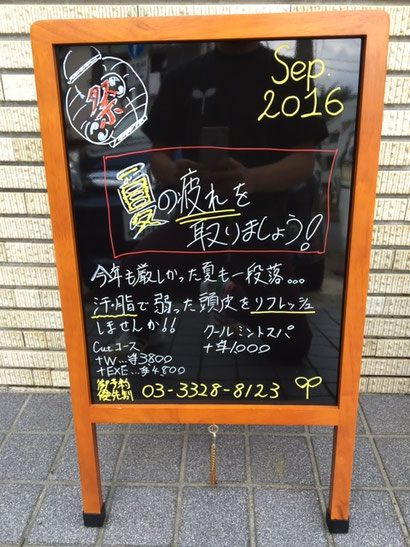 祭
Sep.
2016
夏の疲れを
取りましょう!
今年も厳しかった夏も一段落...
汗・脂で弱った頭皮をリフレッシュ
しませんか!!
クールミントスパ
+¥1,000
Cutコース
+W...¥3800
+EXE...¥4,800
御予約
優先制
03-3328-8123